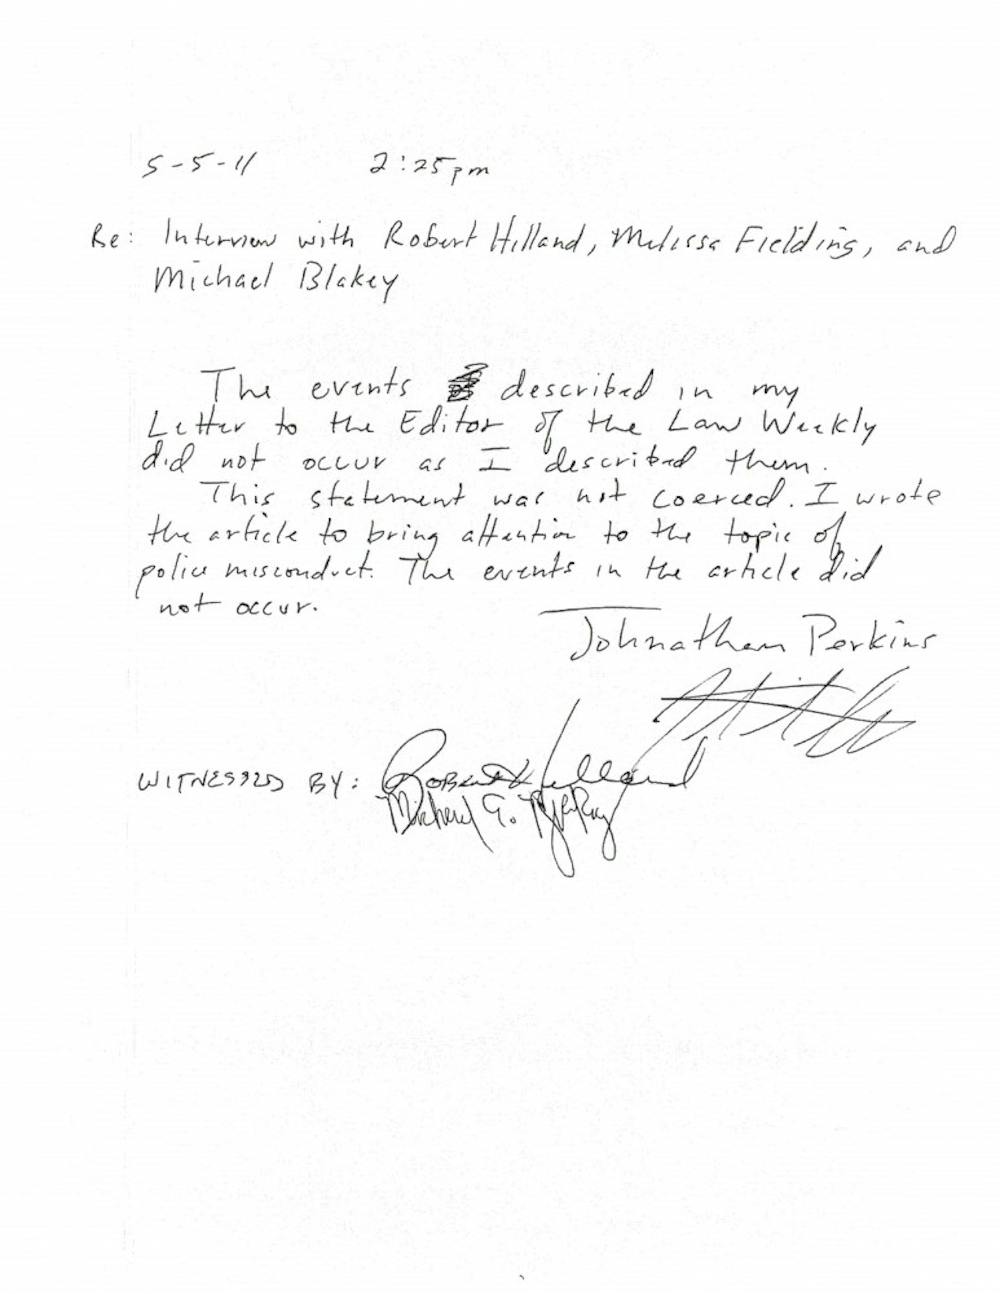 5-5-11 2:25pm
Re: Interview with Robert Hilland, Melissa Fielding, and
Michael Blakey
The events described in my
Letter to the Editor of the Law Weekly
did not occur as I described them.
This statement was not coerced. I wrote
the article to bring attention to the topic of
police misconduct. The events in the article did
not occur.
Johnathan Perkins
WITNESSED BY: Robert Hilland
Michael G.